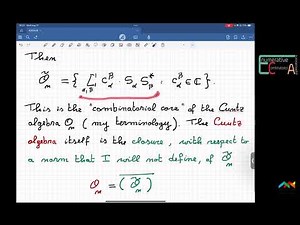 Then
Õ_n = { Σ_{α,β} c_α^β S_α S_β^*, c_α^β ∈ ℂ }.
This is the "combinatorial core" of the Cuntz
algebra O_n (my terminology). The Cuntz
algebra itself is the closure, with respect to
a norm that I will not define, of Õ_n
O_n = (Õ_n)
enumerative